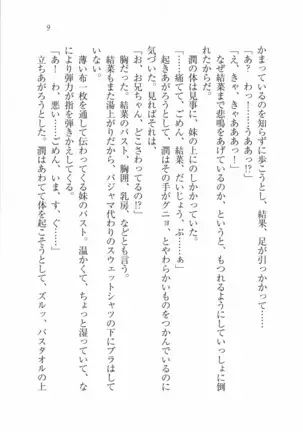 9
かまっているのを知らずに歩こうとし、結果、足が引っかかって――
「あ？　わっ！――うああっ!?」
「え、きゃ、きゃあああっ！」
なぜ結菜まで悲鳴をあげているのか、というと、もつれるようにしていっしょに倒れたからだ。
潤の体は見事に、妹の上にのしかかっていた。
「……痛てて、ごめん、結菜、だいじょう、ぶ……ぁ」
起きあがろうとして、潤はその手がグニョ、とやわらかいものをつかんでいるのに
気づいた。見ればそれは、
「お、お兄ちゃん、どこさわってるの!?」
胸だった。結菜のバスト、胸囲、乳房、などとも言う。
結菜もまた湯上がりだから、パジャマ代わりのスウェットシャツの下にブラはして
いない。
薄い布一枚を通して伝わってくる妹のバスト。温かくて、ちょっと湿っていて、な
により弾力が指を弾きかえしてくる。
「あ！　わ、悪い――ごめん、いま、す、ぐ――」
立ちあがろうとして。潤はあわてて体を起こそうとして、ズルッ、バスタオルの上